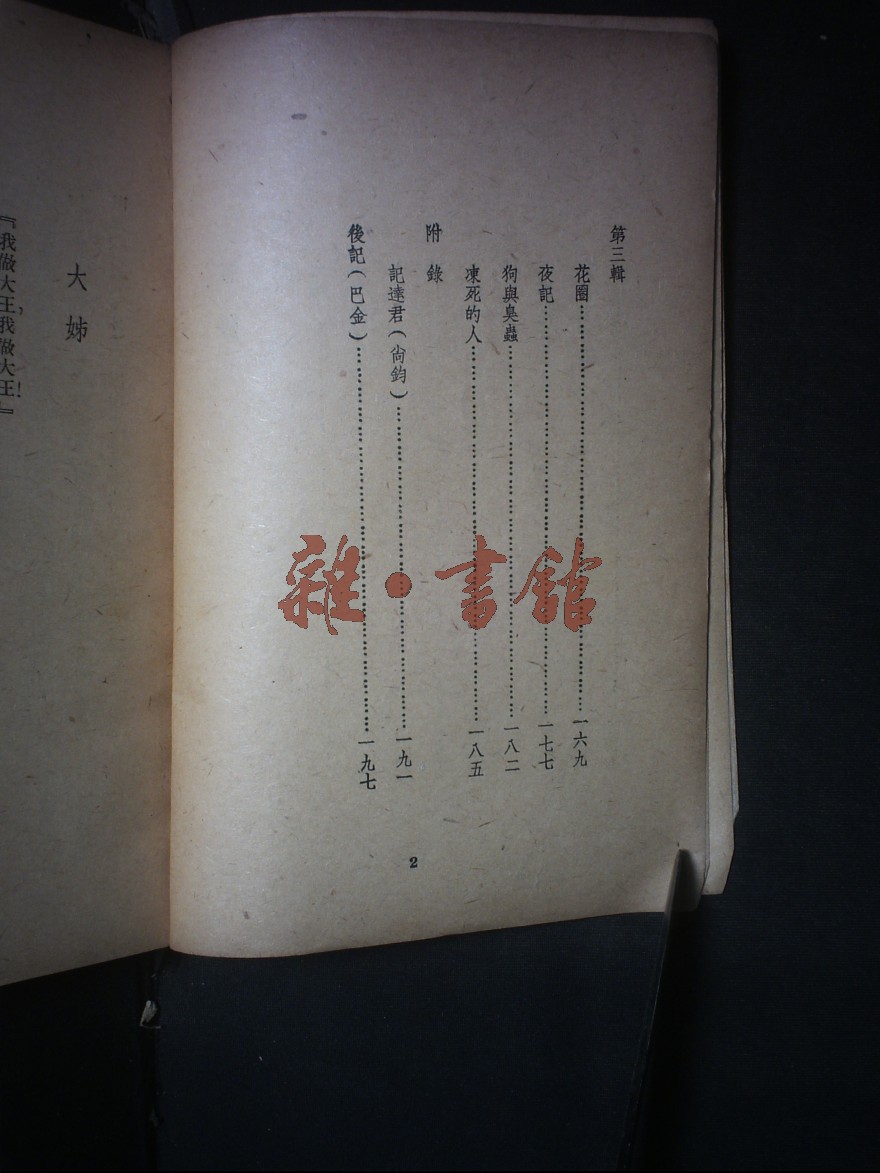 第三輯
花圈⋯⋯⋯⋯一六九
夜記⋯⋯⋯⋯一七七
狗與臭蟲⋯⋯⋯⋯一八二
凍死的人⋯⋯⋯⋯一八五
附錄
記達君(尙鈞)⋯⋯⋯⋯一九一
後記(巴金)⋯⋯⋯⋯一九七
2
雜·書館
大姊
『我做大王,我做大王!』